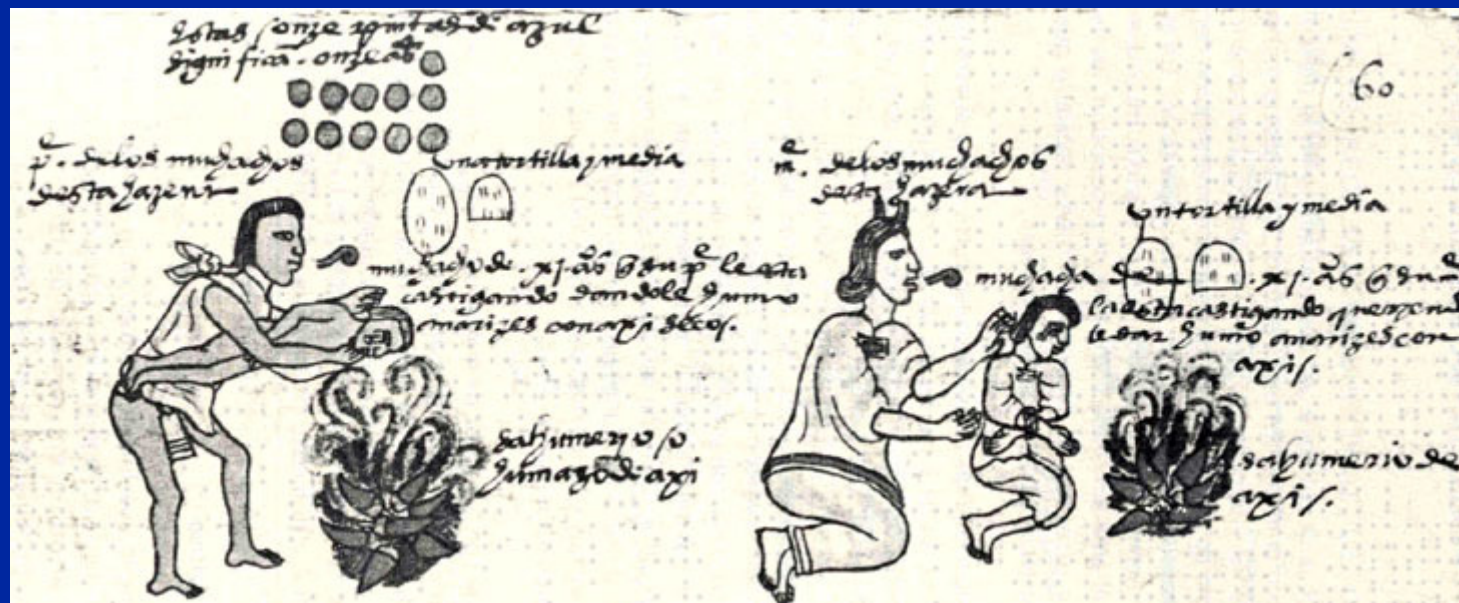 estas onze pintas de azul
significã. onze aºs
60
pe. de los muchachos
desta hazera
una tortilla y media
muchacho de. xj. aºs q̃ su pe le esta
castigando dandole humo
a narizes con axi secos.
sahumerio o
humazo de axi
me. de los muchachos
desta hazera
una tortilla y media
muchacha de xj. aºs q̃ su me
la esta castigando
le dar humo a narizes con
axis.
sahumerio de
axis.